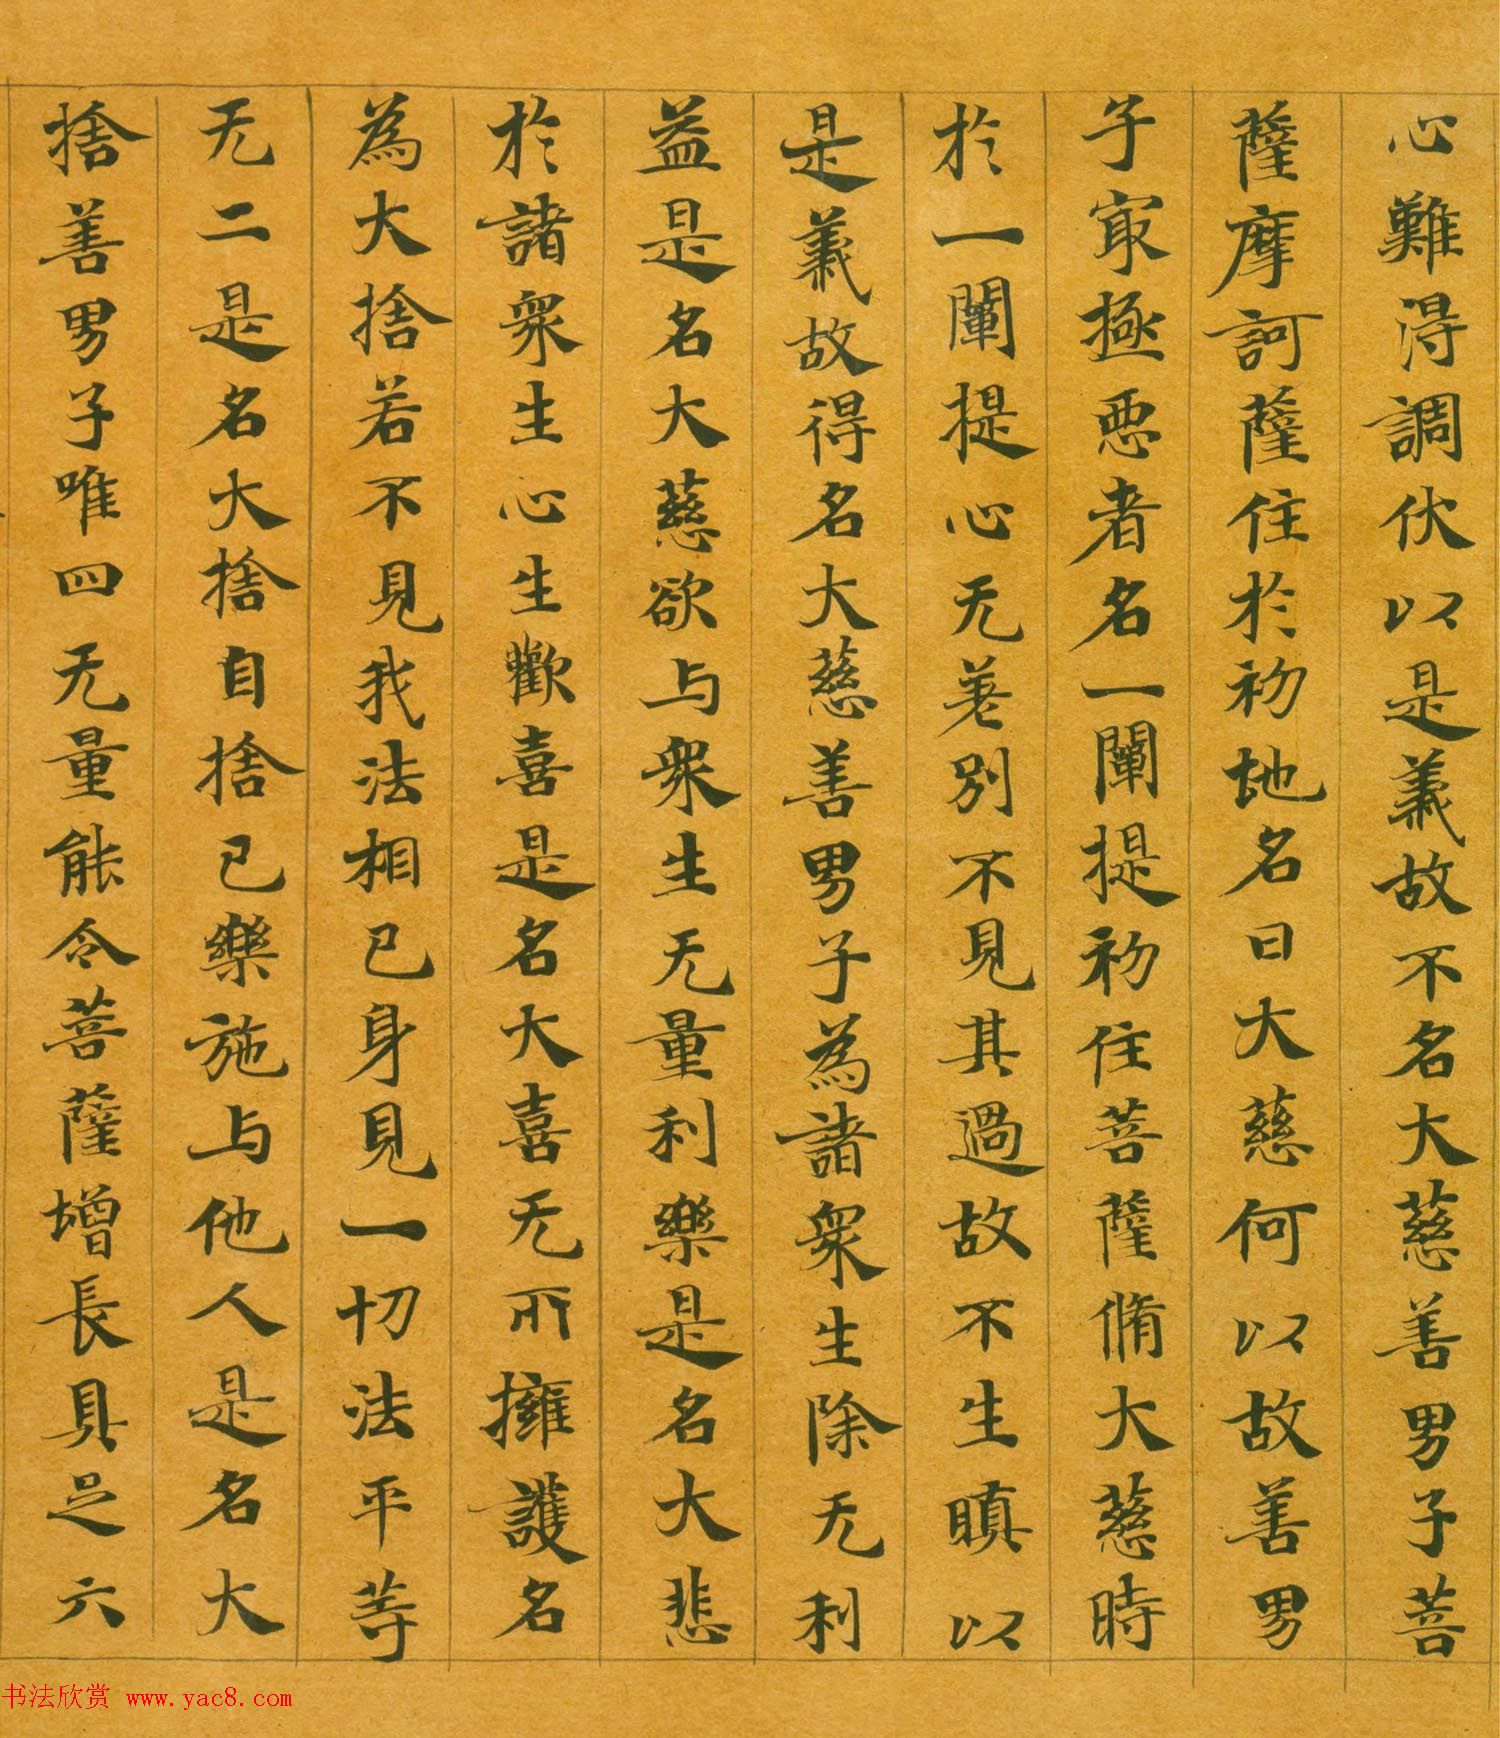 心難得調伏以是義故不名大慈善男子菩
薩摩訶薩住於初地名曰大慈何以故善男
子冣極惡者名一闡提初住菩薩脩大慈時
於一闡提心无差別不見其過故不生瞋以
是義故得名大慈善男子為諸衆生除无利
益是名大慈欲与衆生无量利樂是名大悲
於諸衆生心生歡喜是名大喜无所擁護名
為大捨若不見我法相已身見一切法平等
无二是名大捨自捨已樂施与他人是名大
捨善男子唯四无量能令菩薩增長具足六
书法欣赏 www.yac8.com